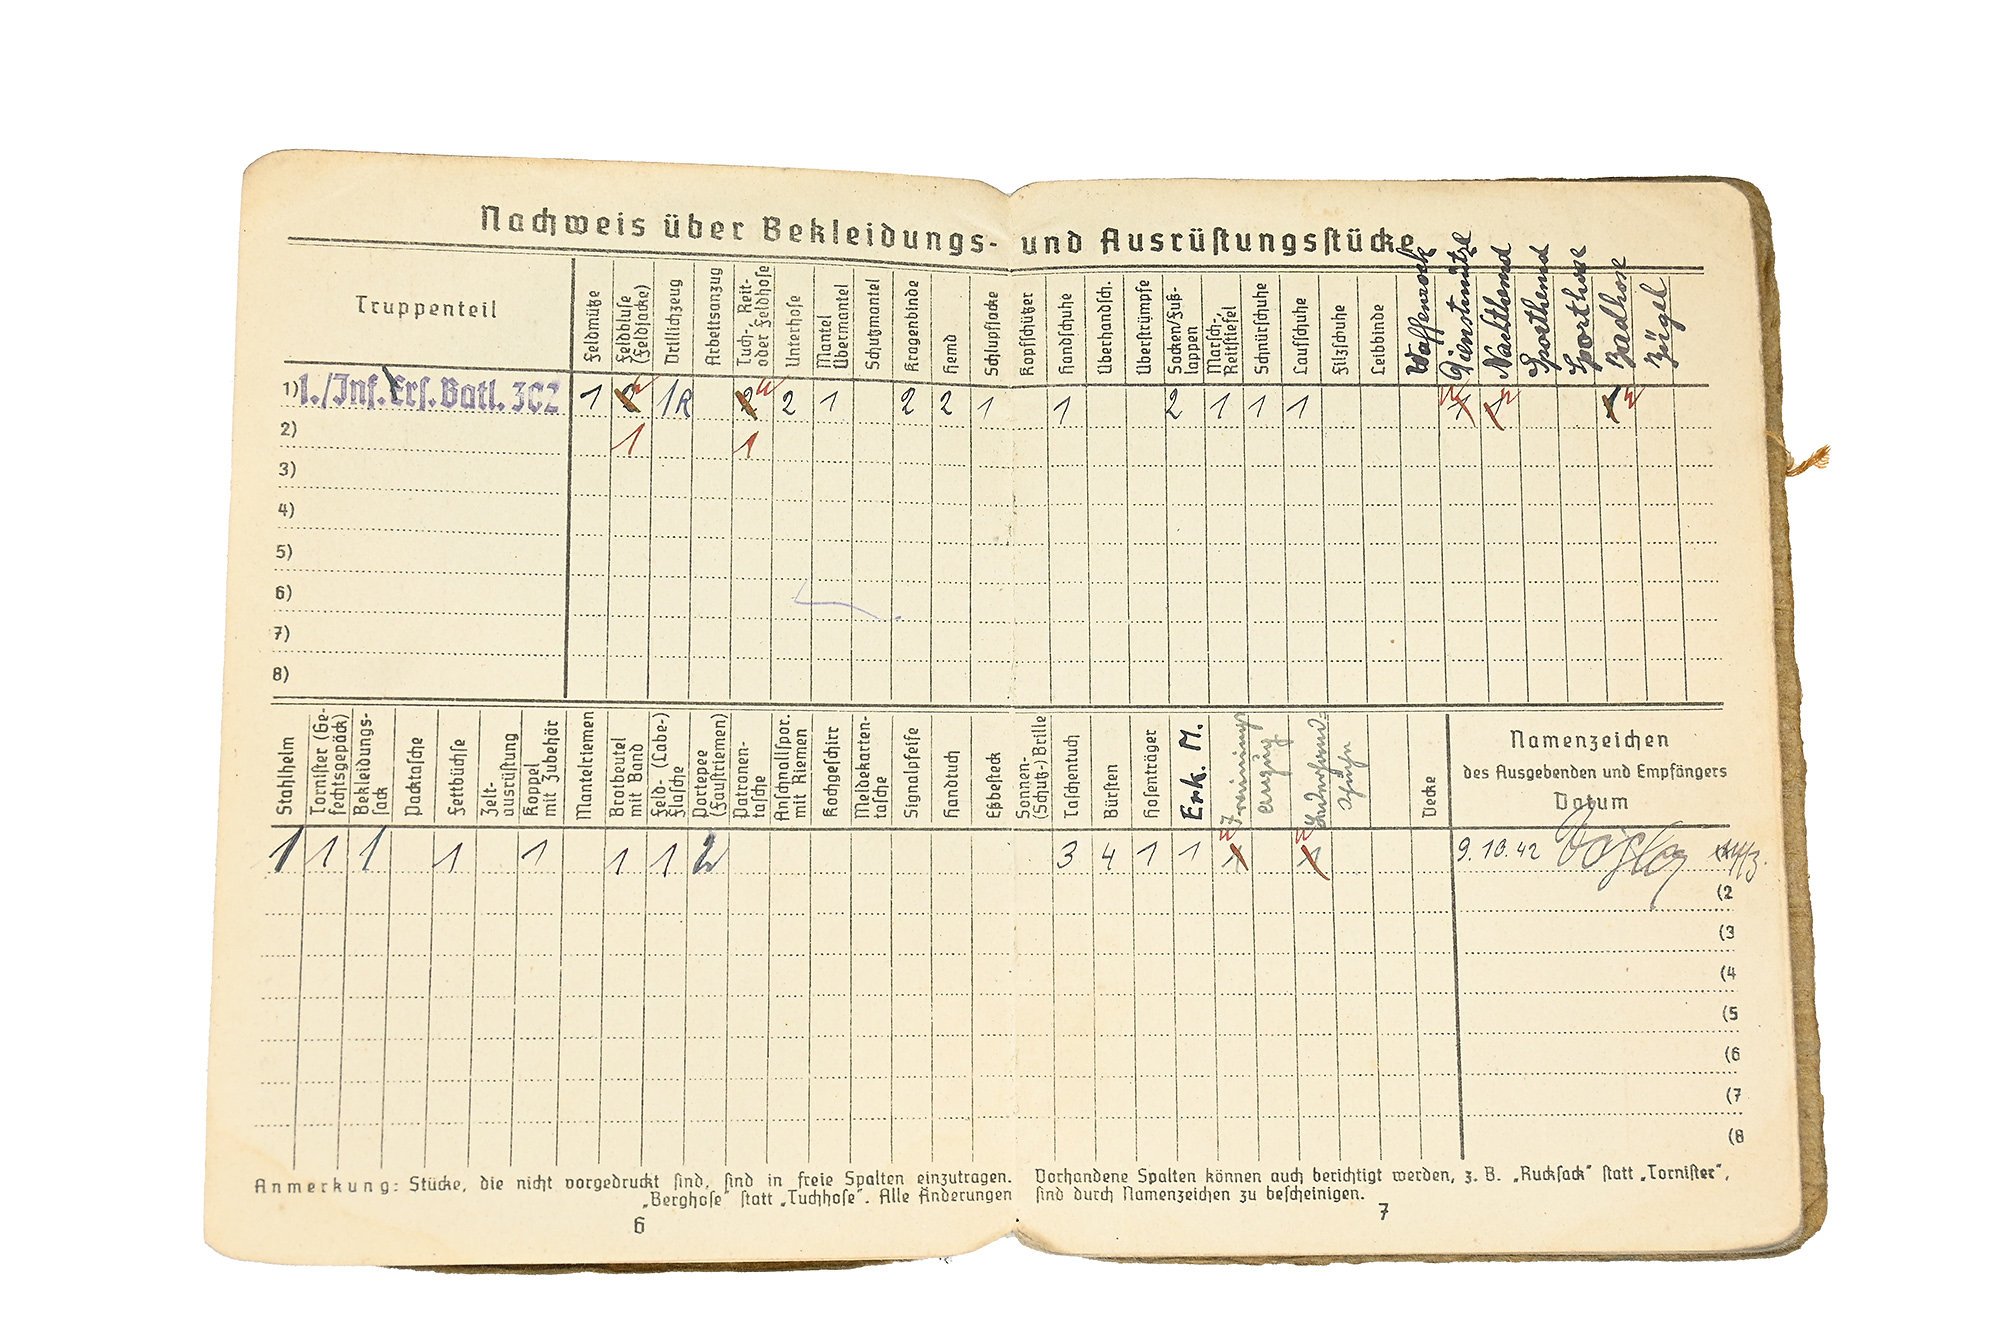 Nachweis über Bekleidungs- und Ausrüstungsstücke
Truppenteil
Feldmütze
Feldbluse
(Feldjacke)
Drillichzeug
Arbeitsanzug
Tuch-, Reit-
oder Feldhose
Unterhose
Mantel
Übermantel
Schutzmantel
Kragenbinde
Hemd
Schlupfjacke
Kopfschützer
Handschuhe
Überhandsch.
Überstrümpfe
Socken/Fuß-
lappen
Marsch-,
Reitstiefel
Schnürschuhe
Laufschuhe
Filzschuhe
Leibbinde
Waffenrock
Dienstmütze
Nachthemd
Sporthemd
Sporthose
Badhose
Bügel
1) 1./Inf. Ers. Batl. 302 1 1R 2 2 1 2 2 1 1 2 1 1 1
2) 1 1
3)
4)
5)
6)
7)
8)
Stahlhelm
Tornister (Ge-
fechtsgepäck)
Bekleidungs-
sack
Packtasche
Fettbüchse
Zelt-
ausrüstung
Koppel
mit Zubehör
Mantelriemen
Brotbeutel
mit Band
Feld- (Labe-)
Flasche
Portepee
(Faustriemen)
Patronen-
tasche
Anschnallspor.
mit Riemen
Kochgeschirr
Meldekarten-
tasche
Signalpfeife
Handtuch
Eßbesteck
Sonnen-
(Schutz-) Brille
Taschentuch
Bürsten
Hosenträger
Erk. M.
Trainings
anzug
schuhe
Decke
Namenzeichen
des Ausgebenden und Empfängers
Datum
1 1 1 1 1 1 1 2 3 4 1 1 1 1 9.10.42
(2
(3
(4
(5
(6
(7
(8
Anmerkung: Stücke, die nicht vorgedruckt sind, sind in freie Spalten einzutragen. Vorhandene Spalten können auch berichtigt werden, z. B. „Rucksack" statt „Tornister",
„Berghose" statt „Tuchhose". Alle Änderungen sind durch Namenzeichen zu bescheinigen.
6
7